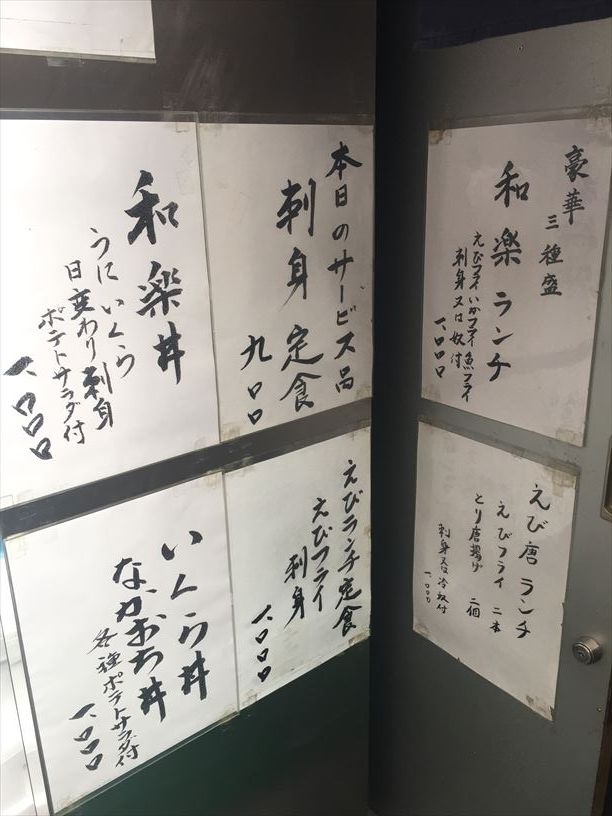 豪華
三種盛
和楽ランチ
えびフライいかフライ魚フライ
刺身又は奴付
一、〇〇〇
本日のサービス品
刺身定食
九〇〇
和楽丼
うにいくら
日変わり刺身
ポテトサラダ付
一、〇〇〇
えび唐ランチ
えびフライ 二本
とり唐揚げ 二個
刺身又は冷奴付
一、〇〇〇
えびランチ定食
えびフライ
刺身
一、〇〇〇
いくら丼
なかおち丼
各種ポテトサラダ付
一、〇〇〇